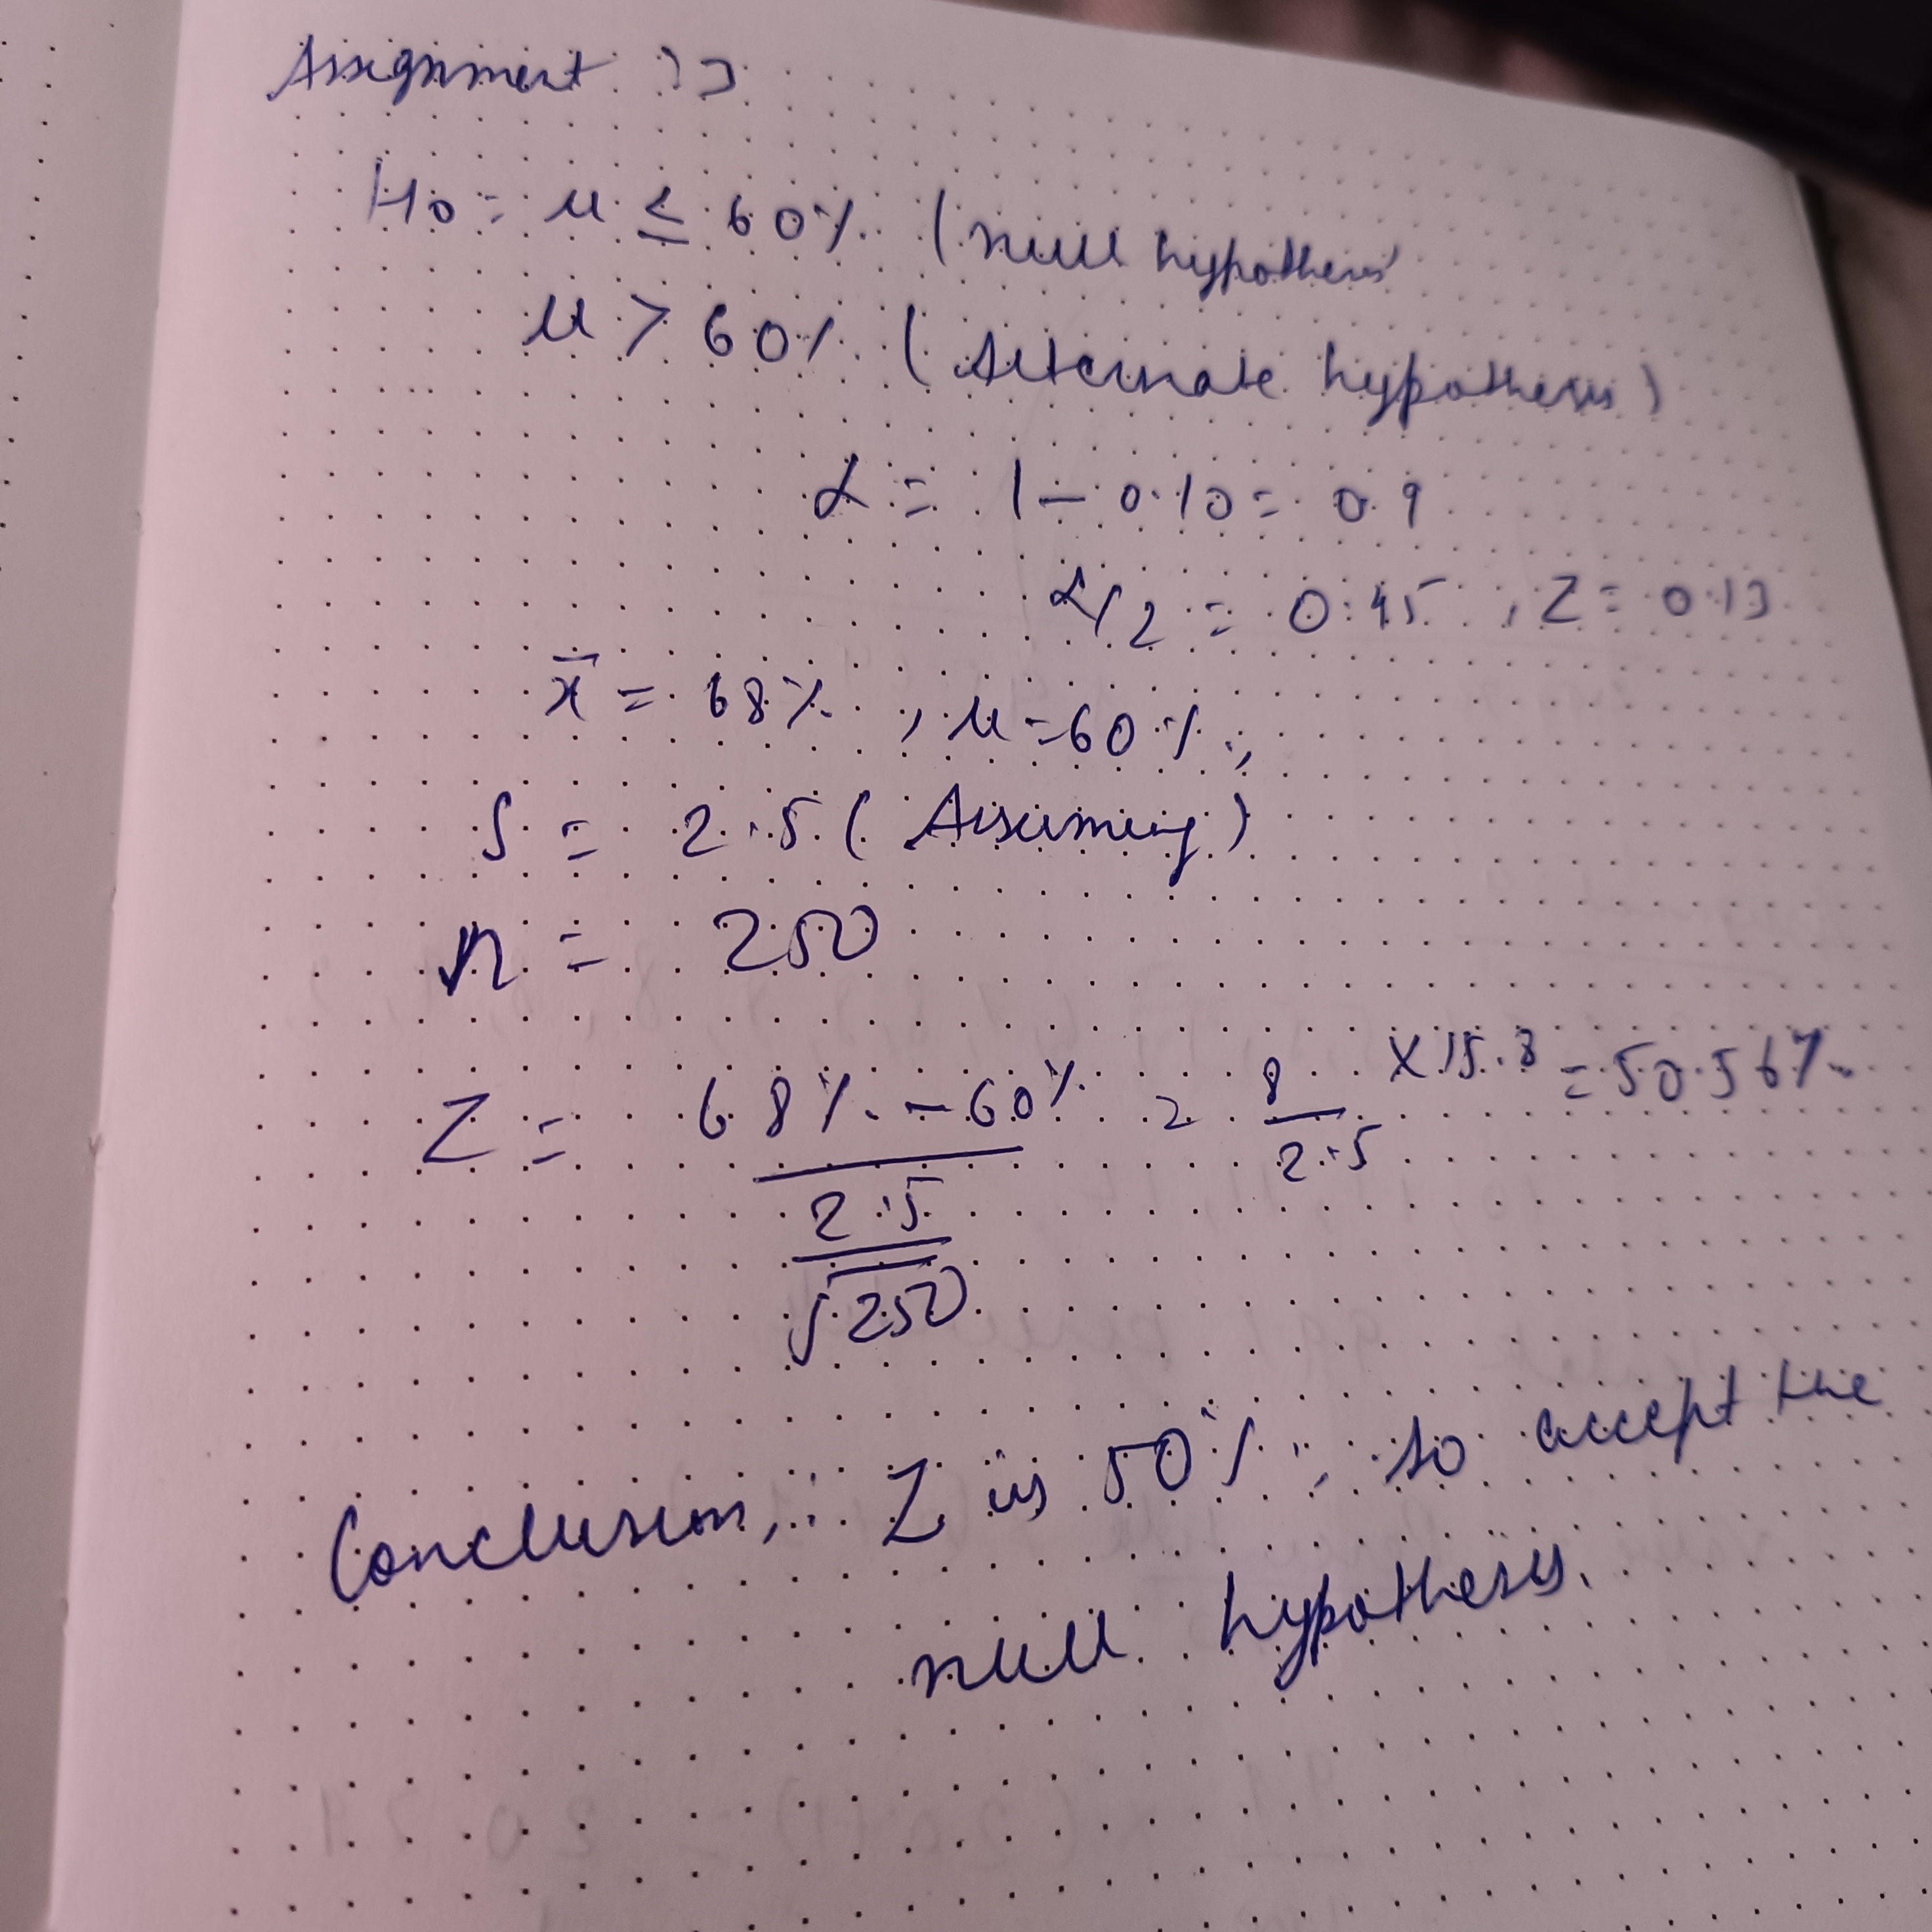 Assignment :->
H0 = μ ≤ 60% (null hypothesis
μ > 60% (Alternate hypothesis)
α = 1 - 0.10 = 0.9
α/2 = 0.45 , Z = 0.13
x̄ = 68% , μ = 60% ,
S = 2.5 (Assuming)
n = 250
Z = 68% - 60% / 2.5 / √250 = 8 / 2.5 × 15.8 = 50.56%
Conclusion, : Z is 50% , so accept the
null hypothesis.